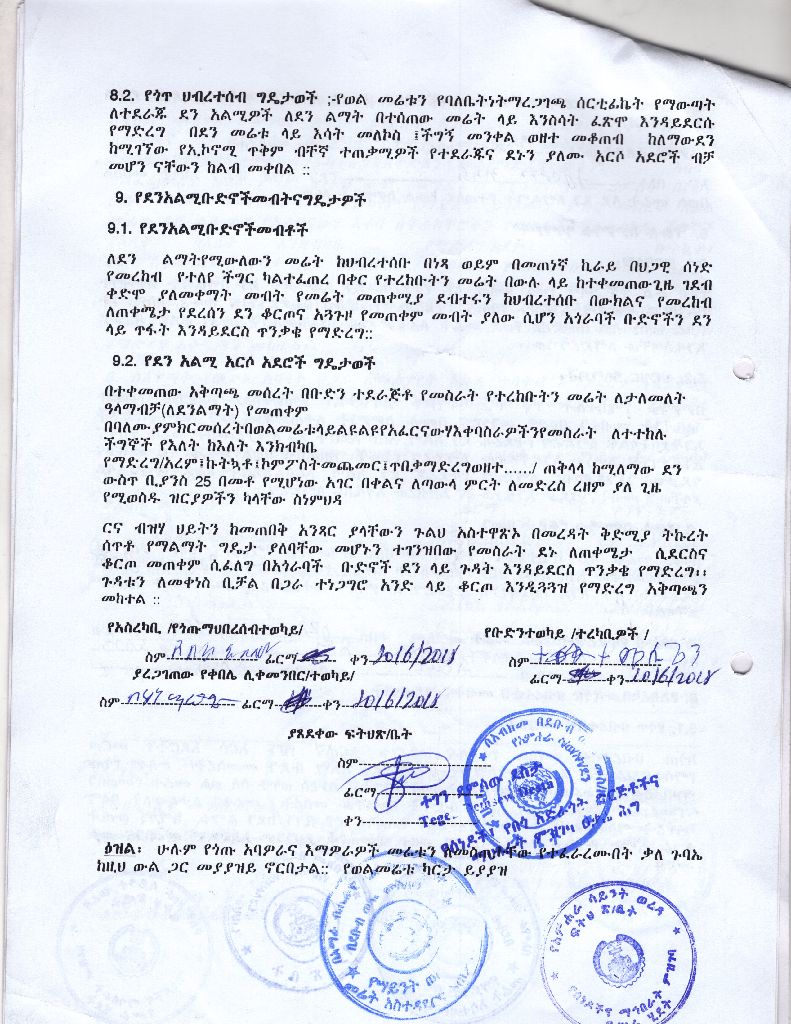 8.2. የጎጥ ህብረተሰብ ግዴታወች ;-የወል መሬቱን የባለቤትነትማረጋገጫ ሰርቲፊኬት የማውጣት
ለተደራጁ ደን አልሚዎች ለደን ልማት በተሰጠው መሬት ላይ እንስሳት ፈጽሞ እንዳይደርሱ
የማድረግ በደን መሬቱ ላይ እሳት መለኮስ ፤ችግኝ መንቀል ወዘተ መቆጠብ ከለማውደን
ከሚገኘው የኢኮኖሚ ጥቅም ብቸኛ ተጠቃሚዎች የተደራጁና ደኑን ያለሙ አርሶ አደሮች ብቻ
መሆን ናቸውን ከልብ መቀበል ፡፡
9. የደንአልሚቡድኖችመብትናግዴታዎች
9.1. የደንአልሚቡድኖችመብቶች
ለደን ልማትየሚውለውን መሬት ከህብረተሰቡ በነጻ ወይም በመጠነኛ ኪራይ በህጋዊ ሰነድ
የመረከብ የተለየ ችግር ካልተፈጠረ በቀር የተረከቡትን መሬት በውሉ ላይ ከተቀመጠውጊዜ ገደብ
ቀድሞ ያለመቀማት መብት የመሬት መጠቀሚያ ደብተሩን ከህብረተሰቡ በውክልና የመረከብ
ለጠቀሜታ የደረሰን ደን ቆርጦና አጓጉዞ የመጠቀም መብት ያለው ሲሆን አጎራባች ቡድኖችን ደን
ላይ ጥፋት እንዳይደርስ ጥንቃቄ የማድረግ፡፡
9.2. የደን አልሚ አርሶ አደሮች ግዴታወች
በተቀመጠው አቅጣጫ መሰረት በቡድን ተደራጅቶ የመስራት የተረከቡትን መሬት ለታለመለት
ዓላማብቻ(ለደንልማት) የመጠቀም
በባለሙያምክርመሰረትበወልመሬቱላይልዩልዩየአፈርናውሃእቀባስራዎችንየመስራት ለተተከሉ
ችግኞች የእለት ከእለት እንክብካቤ
የማድረግ/አረም፤ኩትኳቶ፤ኮምፖስትመጨመር፤ጥበቃማድረግወዘተ....../ ጠቅላላ ከሚለማው ደን
ውስጥ ቢያንስ 25 በመቶ የሚሆነው አገር በቀልና ለጣውላ ምርት ለመድረስ ረዘም ያለ ጊዜ
የሚወስዱ ዝርያዎችን ካላቸው ስነምህዳ
ርና ብዝሃ ህይትን ከመጠበቅ አንጻር ያላቸውን ጉልህ አስተዋጽኦ በመረዳት ቅድሚያ ትኩረት
ሰጥቶ የማልማት ግዴታ ያለባቸው መሆኑን ተገንዝበው የመስራት ደኑ ለጠቀሜታ ሲደርስና
ቆርጦ መጠቀም ሲፈለግ በአጎራባች ቡድኖች ደን ላይ ጉዳት እንዳይደርስ ጥንቃቄ የማድረግ፡፡
ጉዳቱን ለመቀነስ ቢቻል በጋራ ተነጋግሮ አንድ ላይ ቆርጦ እንዲጓጓዝ የማድረግ አቅጣጫን
መከተል ፡፡
የአስረካቢ /የጎጡማህበረሰብተወካይ/ የቡድንተወካይ /ተረካቢዎች /
ስም ፊርማ ቀን 20/6/2018 ስም
ፊርማ ቀን 20/6/2018
ያረጋገጠው የቀበሌ ሊቀመንበር/ተወካይ/
ስም ፊርማ ቀን 20/6/2018
ያጸደቀው ፍትህጽ/ቤት
ስም
ፊርማ
ቀን
ተገኘ ደምለው ደስታ
ዕዝል፡ ሁሉም የጎጡ አባዎራና እማዎራዎች መሬቱን የተፈራረሙበት ቃለ ጉባኤ
ከዚህ ውል ጋር መያያዝይ ኖርበታል፡፡ የወልመሬቱ ካርታ ይያያዝ
የአምሐራ ሳይንት ወረዳ
ፍትህ ጽ/ቤት